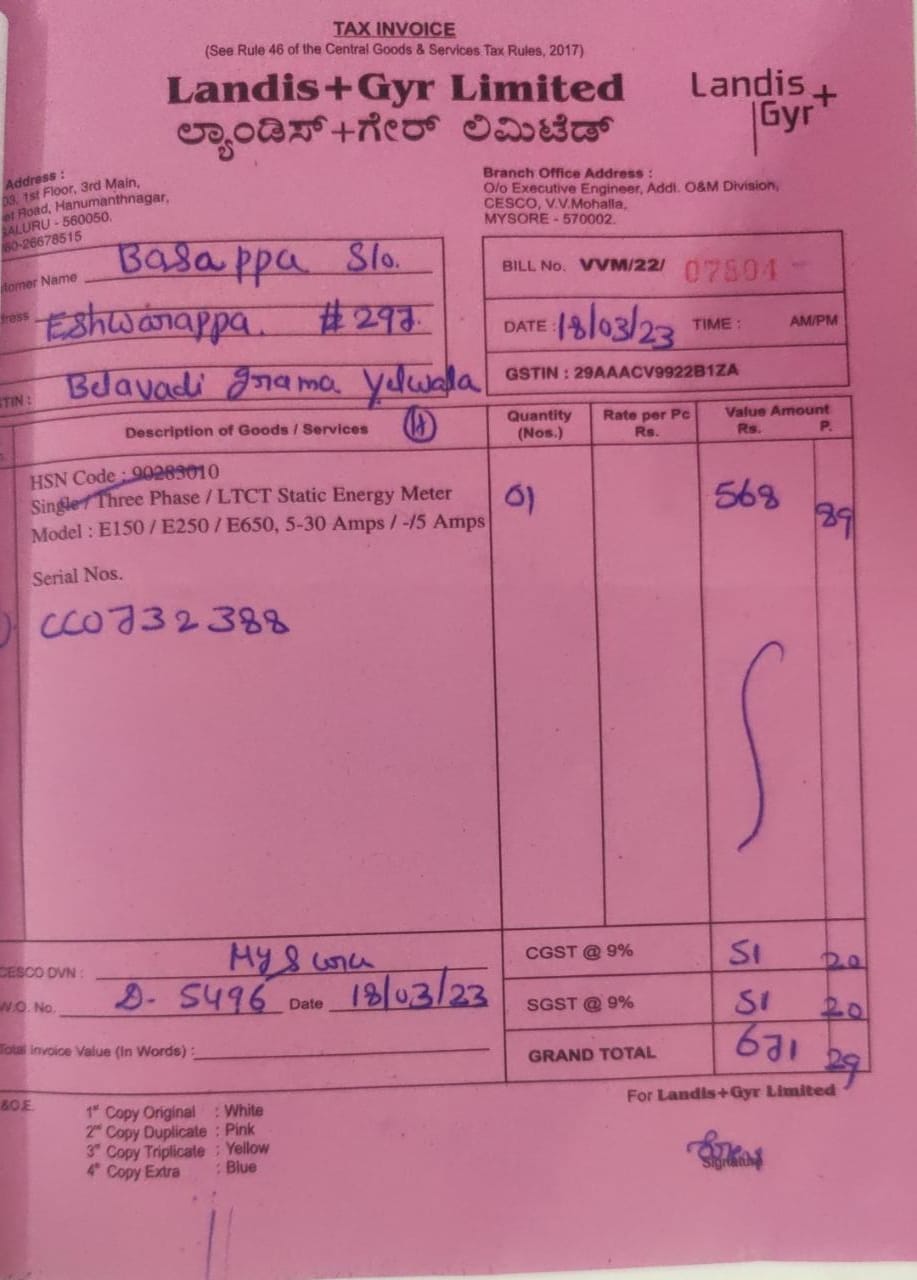 TAX INVOICE
(See Rule 46 of the Central Goods & Services Tax Rules, 2017)
Landis+Gyr Limited
ಲ್ಯಾಂಡಿಸ್+ಗೇರ್ ಲಿಮಿಟೆಡ್
Landis+
Gyr
Address :
03, 1st Floor, 3rd Main,
Road, Hanumanthnagar,
ALURU - 560050.
80-26678515
Branch Office Address :
O/o Executive Engineer, Addl. O&M Division,
CESCO, V.V.Mohalla,
MYSORE - 570002.
tomer Name Basappa S/o.
ress Eshwarappa. # 297.
TIN : Belavadi grama Yelwala
BILL No. VVM/22/ 07804
DATE : 18/03/23 TIME : AM/PM
GSTIN : 29AAACV9922B1ZA
Description of Goods / Services
Quantity (Nos.)
Rate per Pc Rs.
Value Amount Rs. P.
HSN Code : 90283010
Single / Three Phase / LTCT Static Energy Meter 01 568 89
Model : E150 / E250 / E650, 5-30 Amps / -/5 Amps
Serial Nos.
CC0732388
CESCO DVN :
CGST @ 9% 51 20
W.O. No. D- 5496 Date 18/03/23
SGST @ 9% 51 20
Total Invoice Value (In Words) :
GRAND TOTAL 671 29
&O.E.
For Landis+Gyr Limited
1st Copy Original : White
2nd Copy Duplicate : Pink
3rd Copy Triplicate : Yellow
4th Copy Extra : Blue
Signature